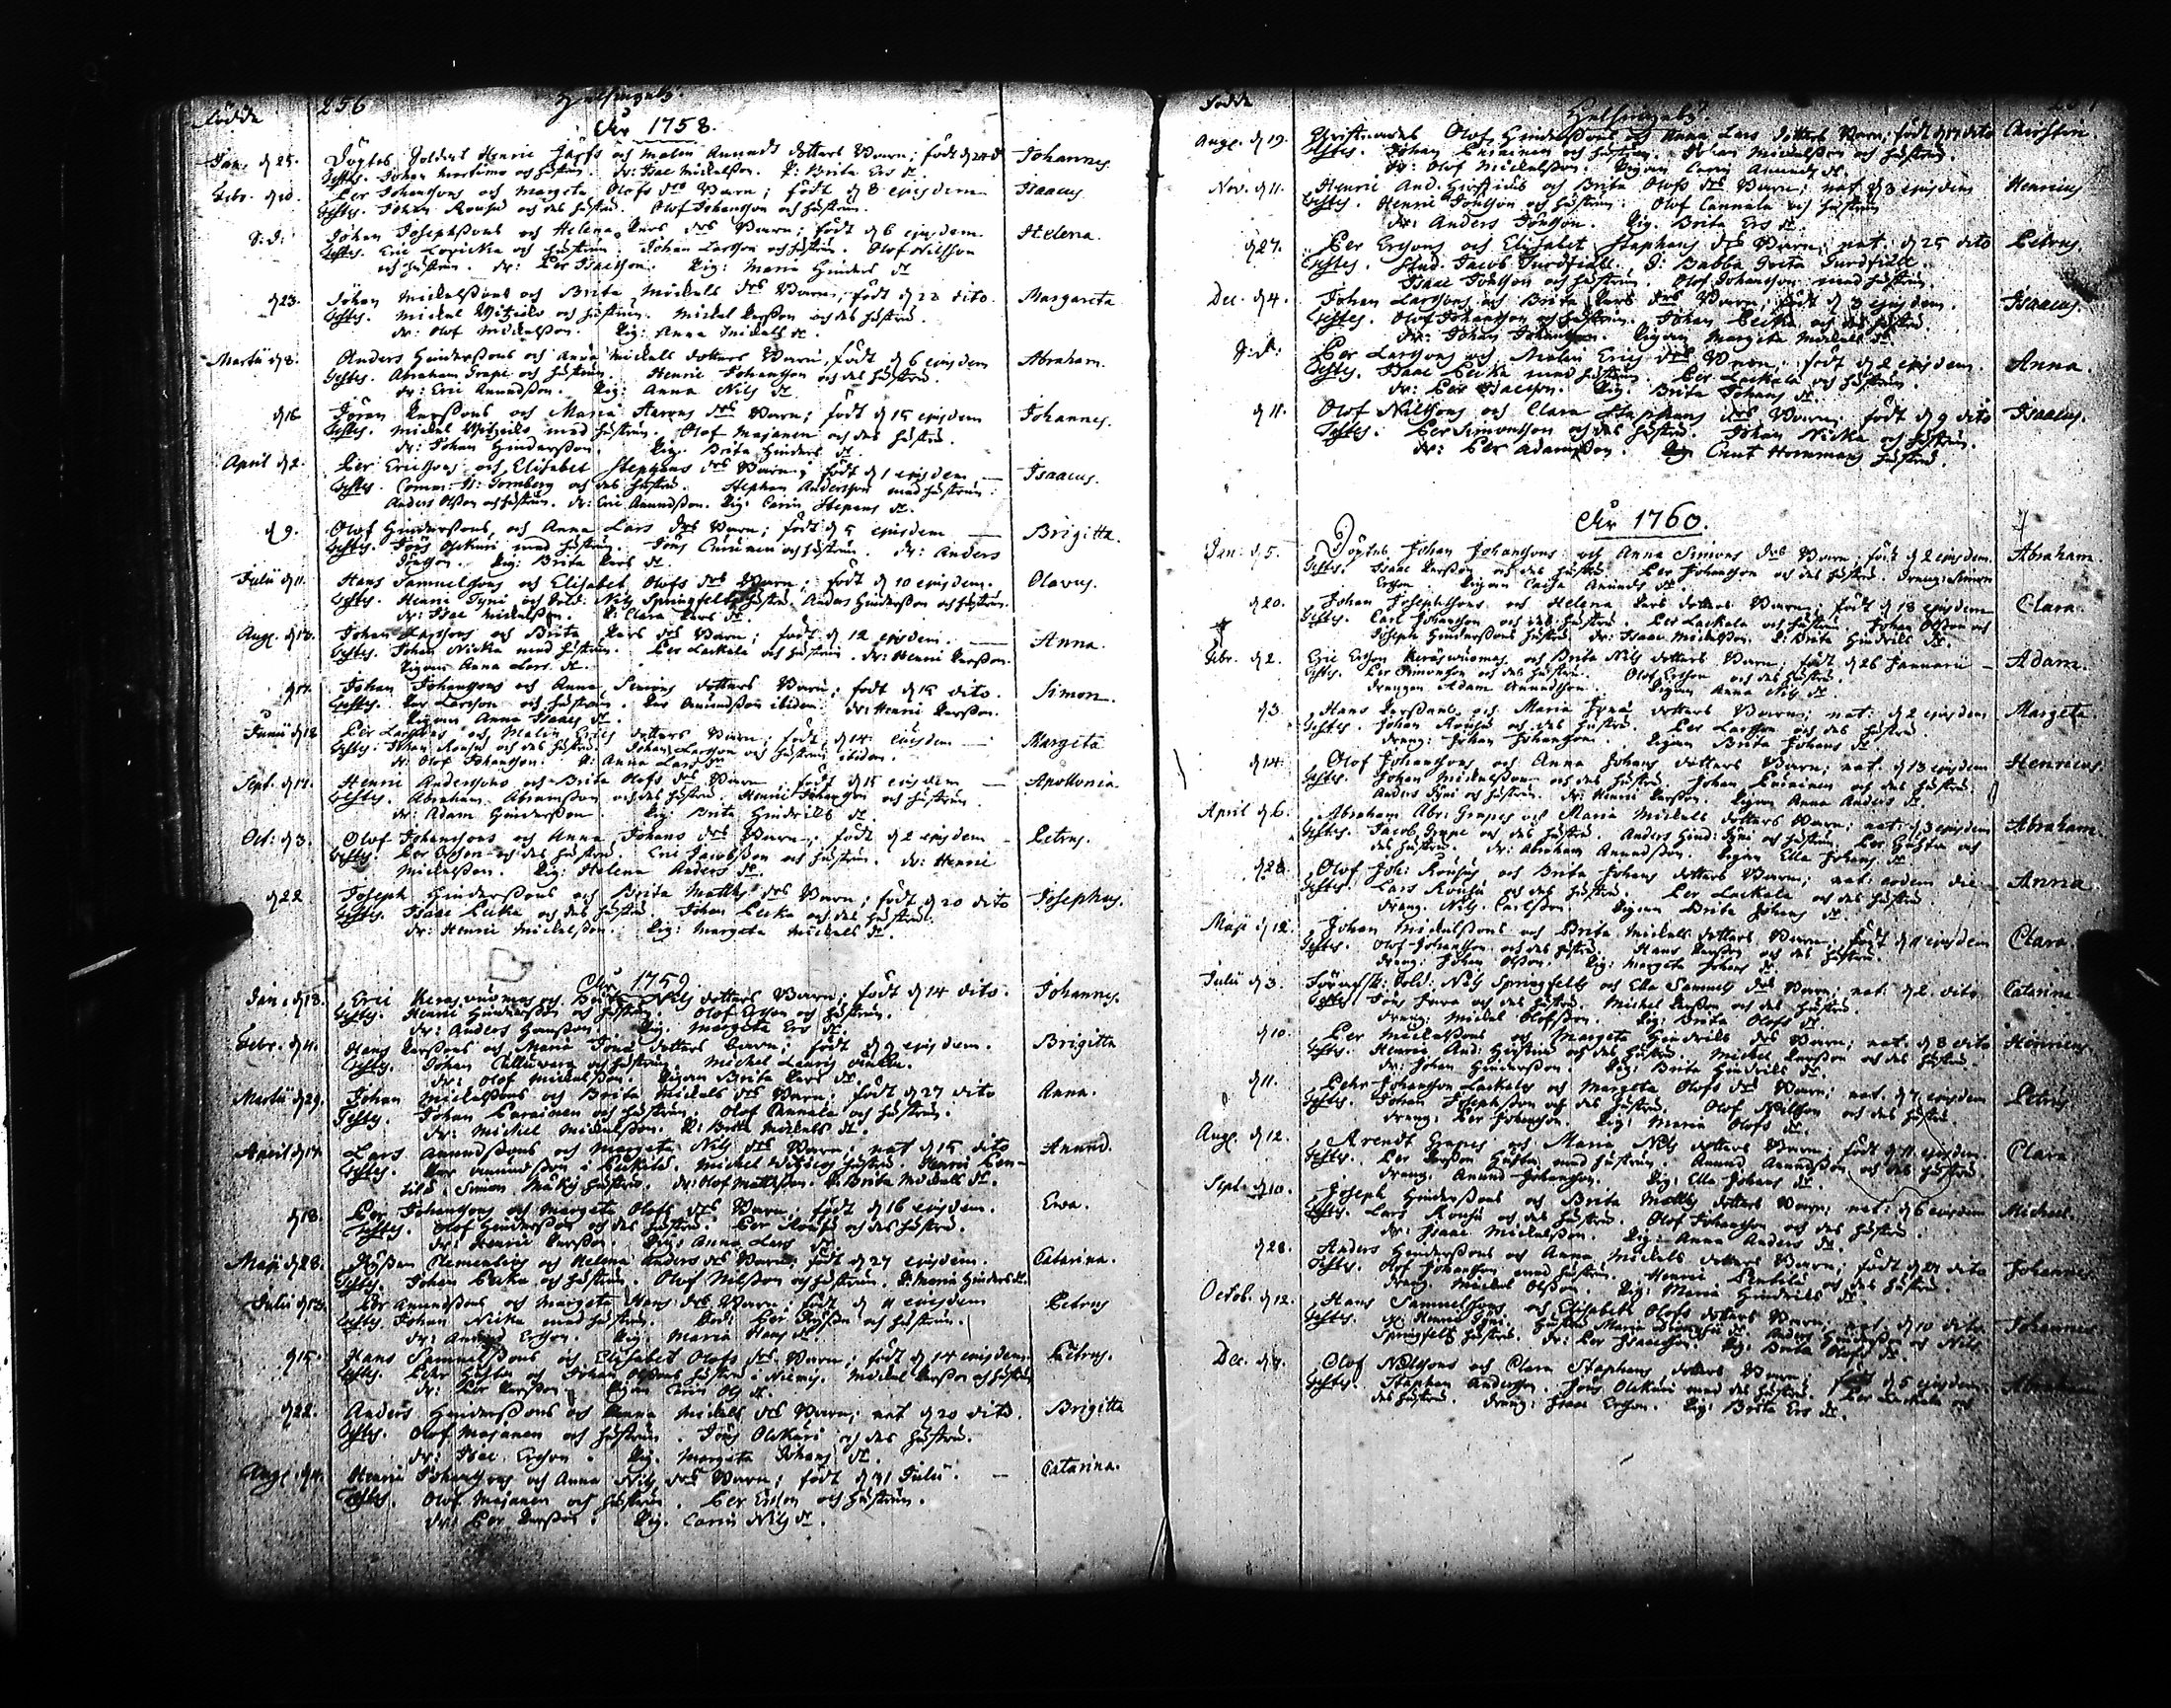 Födde 256 Helsingeby.
Åhr 1758.
Jan. d 25. Döptes Soldat Henric Härfs och Malin Anunds dotters Barn; född d 24 d Johannes
Testes. Johan Martimo och hustrun. dr: Isac Mickelsson. P: Brita Ers dr.
Febr. d 10. Per Johanssons och Margeta Olofs drs Barn; född d 8 ejusdem Isaacus
Testes. Johan Rousu och des hustru. Olof Johansson och hustrun.
S: D: Johan Josephssons och Helena Pers drs Barn; född d 6 ejusdem. Helena.
Testes. Eric och hustrun. Johan Larsson och hustrun. Olof Nilsson
och hustrun. dr: Per Isacsson. Pig: Maria Hinders dr
d 23. Johan Mickelssons och Brita Mickels drs Barn; född d 22 dito. Margareta
Testes. Mickel och hustrun. Mickel Persson och des hustru.
dr: Olof Mickelsson. Pig: Anna Mickels dr
Martii d 8. Anders Hinderssons och Anna Mickels dotters Barn, född d 6 ejusdem Abraham.
Testes. Abraham Grape och hustrun. Henric Johansson och des hustru.
dr: Eric Anundsson. Pig: Anna Nils dr
d 16 Jöran Perssons och Maria Aarons drs Barn; född d 15 ejusdem Johannes.
Testes. Mickel med hustrun. Olof Majanen och des hustru.
dr: Johan Hindersson. Pig. Brita Hinders dr.
April d 2. Per Ericssons och Elisabet Stephans drs Barn; född d 1 ejusdem Isaacus.
Testes. Comm: H: Tornberg och des hustru. Stephan Andersson med hustrun:
Anders Olsson och hustrun. dr: Eric Anundsson. Pig. Carin Stepans dr.
d 9. Olof Hinderssons och Anna Lars drs Barn; född d 5 ejusdem Brigitta.
Testes. Jöns Olkuri med hustrun. Jöns och hustrun. dr: Anders
Jönsson. Pig: Brita Pers dr.
Julii d 11. Hans Samuelssons och Elisabet Olofs drs Barn; född d 10 ejusdem. Olavus.
Testes. Henric Fyni och Sold: Nils Springfelts hustru. Anders Hindersson och hustrun.
dr: Isac Mickelsson. P: Clara Pers dr.
Aug. d 13. Johan Larssons och Brita Pers drs Barn; född d 12 ejusdem. Anna.
Testes. Johan Niska med hustrun. Per Lackala och hustrun. dr: Henric Persson.
Pigan Anna Lars dr.
d 17. Johan Johanssons och Anna Simons dotters Barn; född d 15 dito. Simon.
Testes. Per Larsson och hustrun. Per Anundsson ibidem. dr: Henric Persson.
Pigan Anna Isaacs dr.
Junii d 18 Per Larssons och Malin Erics dotters Barn; född d 14 ejusdem Margeta
Testes: Johan Rousu och des hustru. Johan Larsson och hustrun ibidem.
dr: Olof Johansson. P: Anna Larsdr
Sept. d 17. Henric Anderssons och Brita Olofs drs Barn; född d 15 ejusdem Apollonia.
Testes. Abraham Abramsson och des hustru. Henric Johansson och hustrun.
dr: Adam Hindersson. Pig: Brita Hindrics dr.
Oct: d 3. Olof Johanssons och Anna Johans drs Barn; född d 2 ejusdem Petrus.
Testes. Per Ersson och des hustru. Eric Jacobsson och hustrun. dr: Henric
Mickelsson. Pig: Helena Anders dr.
d 22 Joseph Hinderssons och Brita Matths drs Barn; född d 20 dito Josephus.
Testes. Isaac Peika och des hustru. Johan Peika och des hustru.
dr: Henric Mickelsson. Pig: Margeta Mickels dr.
Åhr 1759.
Jan. d 18. Eric Keräsvuomas och Brita Nils dotters Barn; född d 14 dito. Johannes.
Testes. Henric Hindersson och hustrun. Olof Ersson och hustrun.
dr: Anders Hansson. Pig. Margeta Ers dr.
Febr. d 4. Hans Perssons och Maria Jöns dotters Barn; född d 2 ejusdem. Brigitta
Testes. Johan Tulluvara och hustrun. Michel Laurij.
dr: Olof Mickelsson. Pigan Brita Pers dr.
Martii d 29. Johan Mickelssons och Brita Mickels drs Barn; född d 27 dito Anna.
Testes. Johan och hustrun. Olof Cannala och hustrun.
dr: Michel Mickelsson. P: Brita Mickels dr.
April d 17 Lars Anundssons och Margeta Nils drs Barn; nat d 15 dito Anund.
Testes. Per Anundsson i. Michel hustru. Henric
Simon Mäkis hustru. dr: Olof Mattsson. P: Brita Mickels dr.
d 18. Per Johanssons och Margeta Olofs drs Barn; född d 16 ejusdem. Ewa.
Testes. Olof Hindersson och des hustru. Per Rousu och des hustru.
dr: Henric Persson. Pig: Anna Lars dr
Maji d 28. Clementis och Helena Anders drs Barn; född d 27 ejusdem. Catarina.
Testes. Johan Peika och hustrun. Olof Nilsson och hustrun. P: Maria Hinders dr.
Julii d 13. Per Anundssons och Margeta Hans drs Barn; född d 11 ejusdem Petrus
Testes. Johan Niska med hustrun. Per och hustrun.
dr: Anund Ersson. Pig: Maria Hans dr
d 15. Hans Samuelssons och Elisabet Olofs drs Barn; född d 14 ejusdem. Petrus.
Testes. och Johan Olssons hustru i Niemis. Mickel Persson och hustrun.
dr: Per Persson. Pigan Carin Ols dr.
d 22. Anders Hinderssons och Anna Mickels drs Barn; nat d 20 dito. Brigitta
Testes. Olof Majanen och hustrun. Jöns Olkuri och des hustru.
dr: Isac Ersson. Pig. Margeta Johans dr.
Aug. d 4. Henric Johanssons och Anna Nils drs Barn; född d 31 Julii. Catarina.
Testes. Olof Majanen och hustrun. Per Ersson och hustrun.
dr: Per Persson. Pig. Carin Nils dr.
Födde Helsingeby.
Aug. d 19. Christnades Olof Hinderssons och Anna Lars dotters Barn; född d 17 dito Christin
Testes. Johan och hustrun. Johan Mickelsson och hustrun.
dr: Olof Mickelsson. Pigan Carin Anunds dr.
Nov. d 11. Henric And. och Brita Olofs drs Barn; nat. d 8 ejusdem Henricus
Testes. Henric Jönsson och hustrun. Olof Cannala och hustrun
dr: Anders Jönsson. Pig. Brita Ers dr.
d 27. Per Erssons och Elisabet Stephans drs Barn; nat. d 25 dito Petrus.
Testes. Stud. Jacob Turdfiäll. J: Babba Greta Turdfiäll.
Isaac Jönsson och hustrun. Olof Johansson med hustrun.
Dec. d 4. Johan Larssons och Brita Pers drs Barn; född d 3 ejusdem. Isaacus.
Testes. Olof Johansson och hustrun. Johan Peika och des hustru.
dr: Johan Johansson. Pigan Margeta Mickels dr.
S: D: Per Larssons och Malin Erics drs Barn; född d 2 ejusdem. Anna.
Testes. Isaac Peika med hustrun. Per Lackala och hustrun.
dr: Per Isacsson. Pig. Brita Johans dr.
d 11. Olof Nilssons och Clara Stephans drs Barn; född d 9 dito Isaacus.
Testes. Per Simonsson och des hustru. Johan Niska och hustrun.
dr: Per Adamsson. Pig Cnut Hornmans hustru.
Åhr 1760.
Jan: d 5. Döptes Johan Johanssons och Anna Simons drs Barn; född d 2 ejusdem. Abraham
Testes. Isaac Persson och des hustru. Per Johansson och des hustru. dreng: Simon
Ersson. Pigan Caisa Anunds dr.
d 20. Johan Josephssons och Helena Pers dotters Barn; född d 18 ejusdem Clara.
Testes. Carl Johansson och des hustru. Per Lackala och hustrun. Johan Olsson och
Joseph Hinderssons hustru. dr: Isaac Mickelsson. P: Brita Hindrics dr.
Febr. d 2. Eric Ersson Keräsvuomas och Brita Nils dotters Barn; född d 26 Januarii Adam.
Testes. Per Simonsson och des hustru. Olof Ersson och des hustru.
drengen Adam Anundsson. Pigan Anna Nils dr.
d 3. Hans Perssons och Maria Jöns dotters Barn; nat: d 2 ejusdem Margeta.
Testes. Johan Rousu och des hustru. Per Larsson och des hustru.
dreng: Johan Johansson. Pigan Brita Johans dr.
d 14. Olof Johanssons och Anna Johans dotters Barn; nat. d 13 ejusdem Henricus.
Testes. Johan Mickelsson och des hustru. Johan och des hustru.
Anders Fyni och hustrun. dr: Henric Persson. Pigan Anna Anders dr.
April d 6. Abraham Abr: Grapes och Maria Mickels dotters Barn; nat: d 3 ejusdem Abraham.
Testes. Jacob Grape och des hustru. Anders Hind: Fyni och hustrun. Per och
des hustru. dr: Abraham Anundsson. Pigan Ella Johans dr.
d 28. Olof Joh: Rousus och Brita Johans dotters Barn; nat: eodem die Anna
Testes. Lars Rousu och des hustru. Per Lackala och des hustru
dreng. Nils Carlsson. Pigan Brita Johans dr.
Maji d 12. Johan Mickelssons och Brita Mickels dotters Barn; född d 11 ejusdem Clara.
Testes. Olof Johansson och des hustru. Hans Persson och des hustru.
dreng: Johan Olsson. Pig: Margeta Johans dr
Julii d 3. Sold: Nils Springfelts och Ella Samuels drs Barn; nat: d 2. dito Catarina
Testes. Jöns och des hustru. Michel Persson och des hustru.
dreng: Mickel Olofsson. Pig: Brita Olofs dr.
d 10. Per Mickelssons och Margeta Hindrics drs Barn; nat. d 8 dito Henricus.
Testes. Henric And: och des hustru. Mickel Persson och des hustru.
dr: Johan Hindersson. Pig: Brita Hindrics dr.
d 11. Pehr Johansson Lackalas och Margeta Olofs drs Barn; nat. d 7 ejusdem Petrus
Testes. Johan Josephsson och des hustru. Olof Nilsson och des hustru.
dreng: Per Johansson. Pig: Maria Olofs dr.
Aug. d 12. Arendt Grapes och Maria Nils dotters Barn, född d 11 ejusdem. Clara
Testes. Per Persson med hustrun. Anund Anundsson och des hustru.
dreng. Anund Johansson. Pig: Ella Johans dr.
Sept. d 10. Joseph Hinderssons och Brita Matths dotters Barn; nat: d 6 ejusdem Michael.
Testes. Lars Rousu och des hustru. Olof Johansson och des hustru.
dr: Isaac Mickelsson. Pig: Anna Anders dr.
d 28. Anders Hinderssons och Anna Mickels dotters Barn; född d 27 dito Johannes
Testes. Olof Johansson med hustrun. Henric och des hustru.
dreng Mickel Olsson. Pig: Maria Hindrics dr.
Octob. d 12. Hans Samuelssons och Elisabeth Olofs dotters Barn; nat. d 10 dito. Johannes
Testes. Henric Fyni. Hustru Maria. Anders Hindersson och Nils
Springfelts hustru. dr: Per Isacsson. Pig: Brita Olofs dr.
Dec. d 7. Olof Nilssons och Clara Stephans dotters Barn; född d 5 ejusdem. Abraham
Testes. Stephan Andersson. Jöns Olkuri med des hustru. Per Lackala och
des hustru. dreng: Isaac Ersson. Pig: Brita Ers dr.